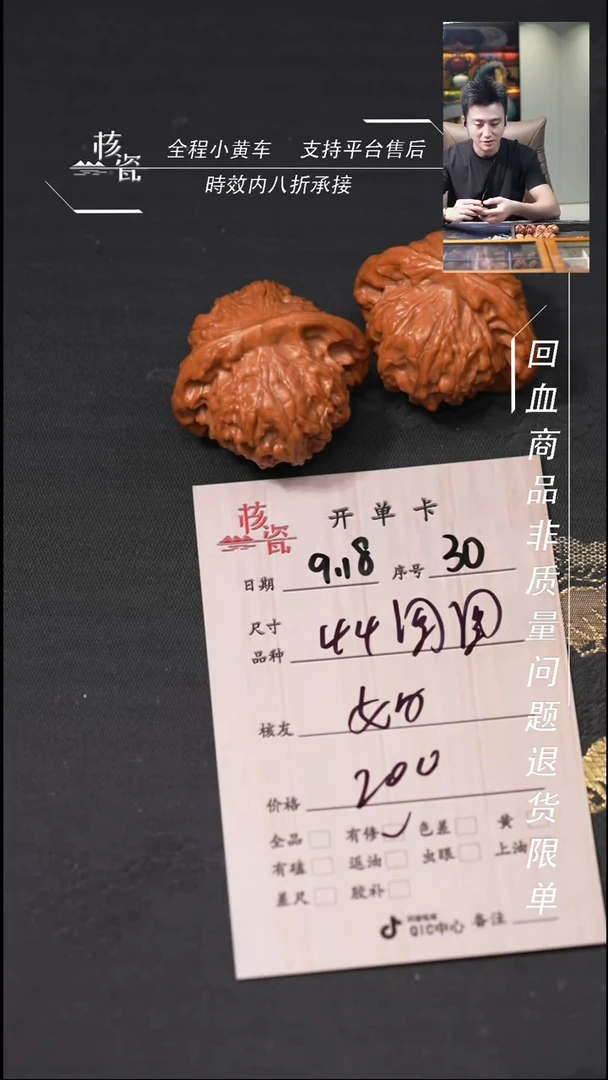 核瓷
全程小黄车 支持平台售后
時效内八折承接
回血商品非质量问题退货限单
核瓷 开单卡
日期 9.18 序号 30
尺寸
品种 44
核友
价格 200
全品 有修 色差 黄
有磕 返油 虫眼 上油
差尺 胶补
QIC中心 备注